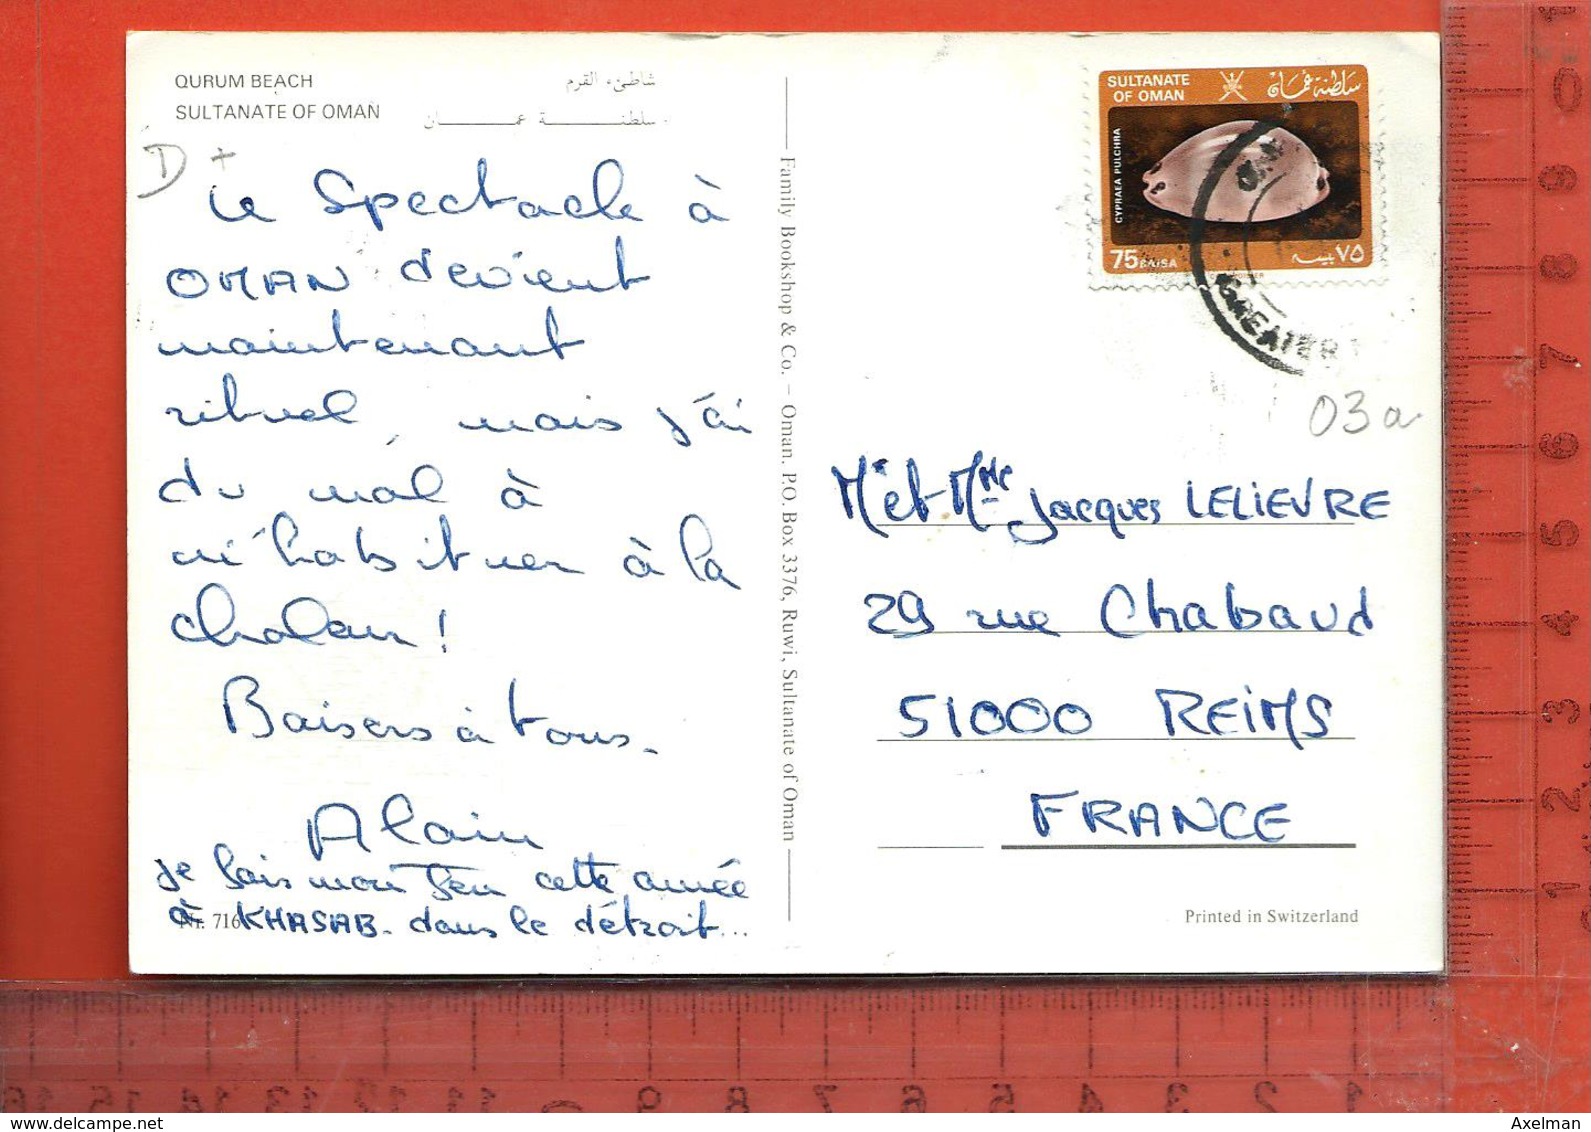 QURUM BEACH
شاطىء القرم
SULTANATE OF OMAN
سلطنة عمان
D +
Le Spectacle à
OMAN devient
maintenant
rituel, mais j'ai
du mal à
m'habituer à la
chaleur!
Baisers à tous.
Alain
je fais mon Jeu cette année
à KHASAB. dans le détroit...
Nr. 716
Family Bookshop & Co. – Oman. P.O. Box 3376, Ruwi, Sultanate of Oman
SULTANATE
OF OMAN
سلطنة عمان
CYPRAEA PULCHRA
75 BAISA
٧٥ بيسة
GREATER
03a
Mr et Mme Jacques LELIEVRE
29 rue Chabaud
51000 REIMS
FRANCE
Printed in Switzerland
0
9
8
7
6
5
4
3
2
1
16 15 14 13 12 11 0 9 8 7 6 5 4 3 2 1
Axelman